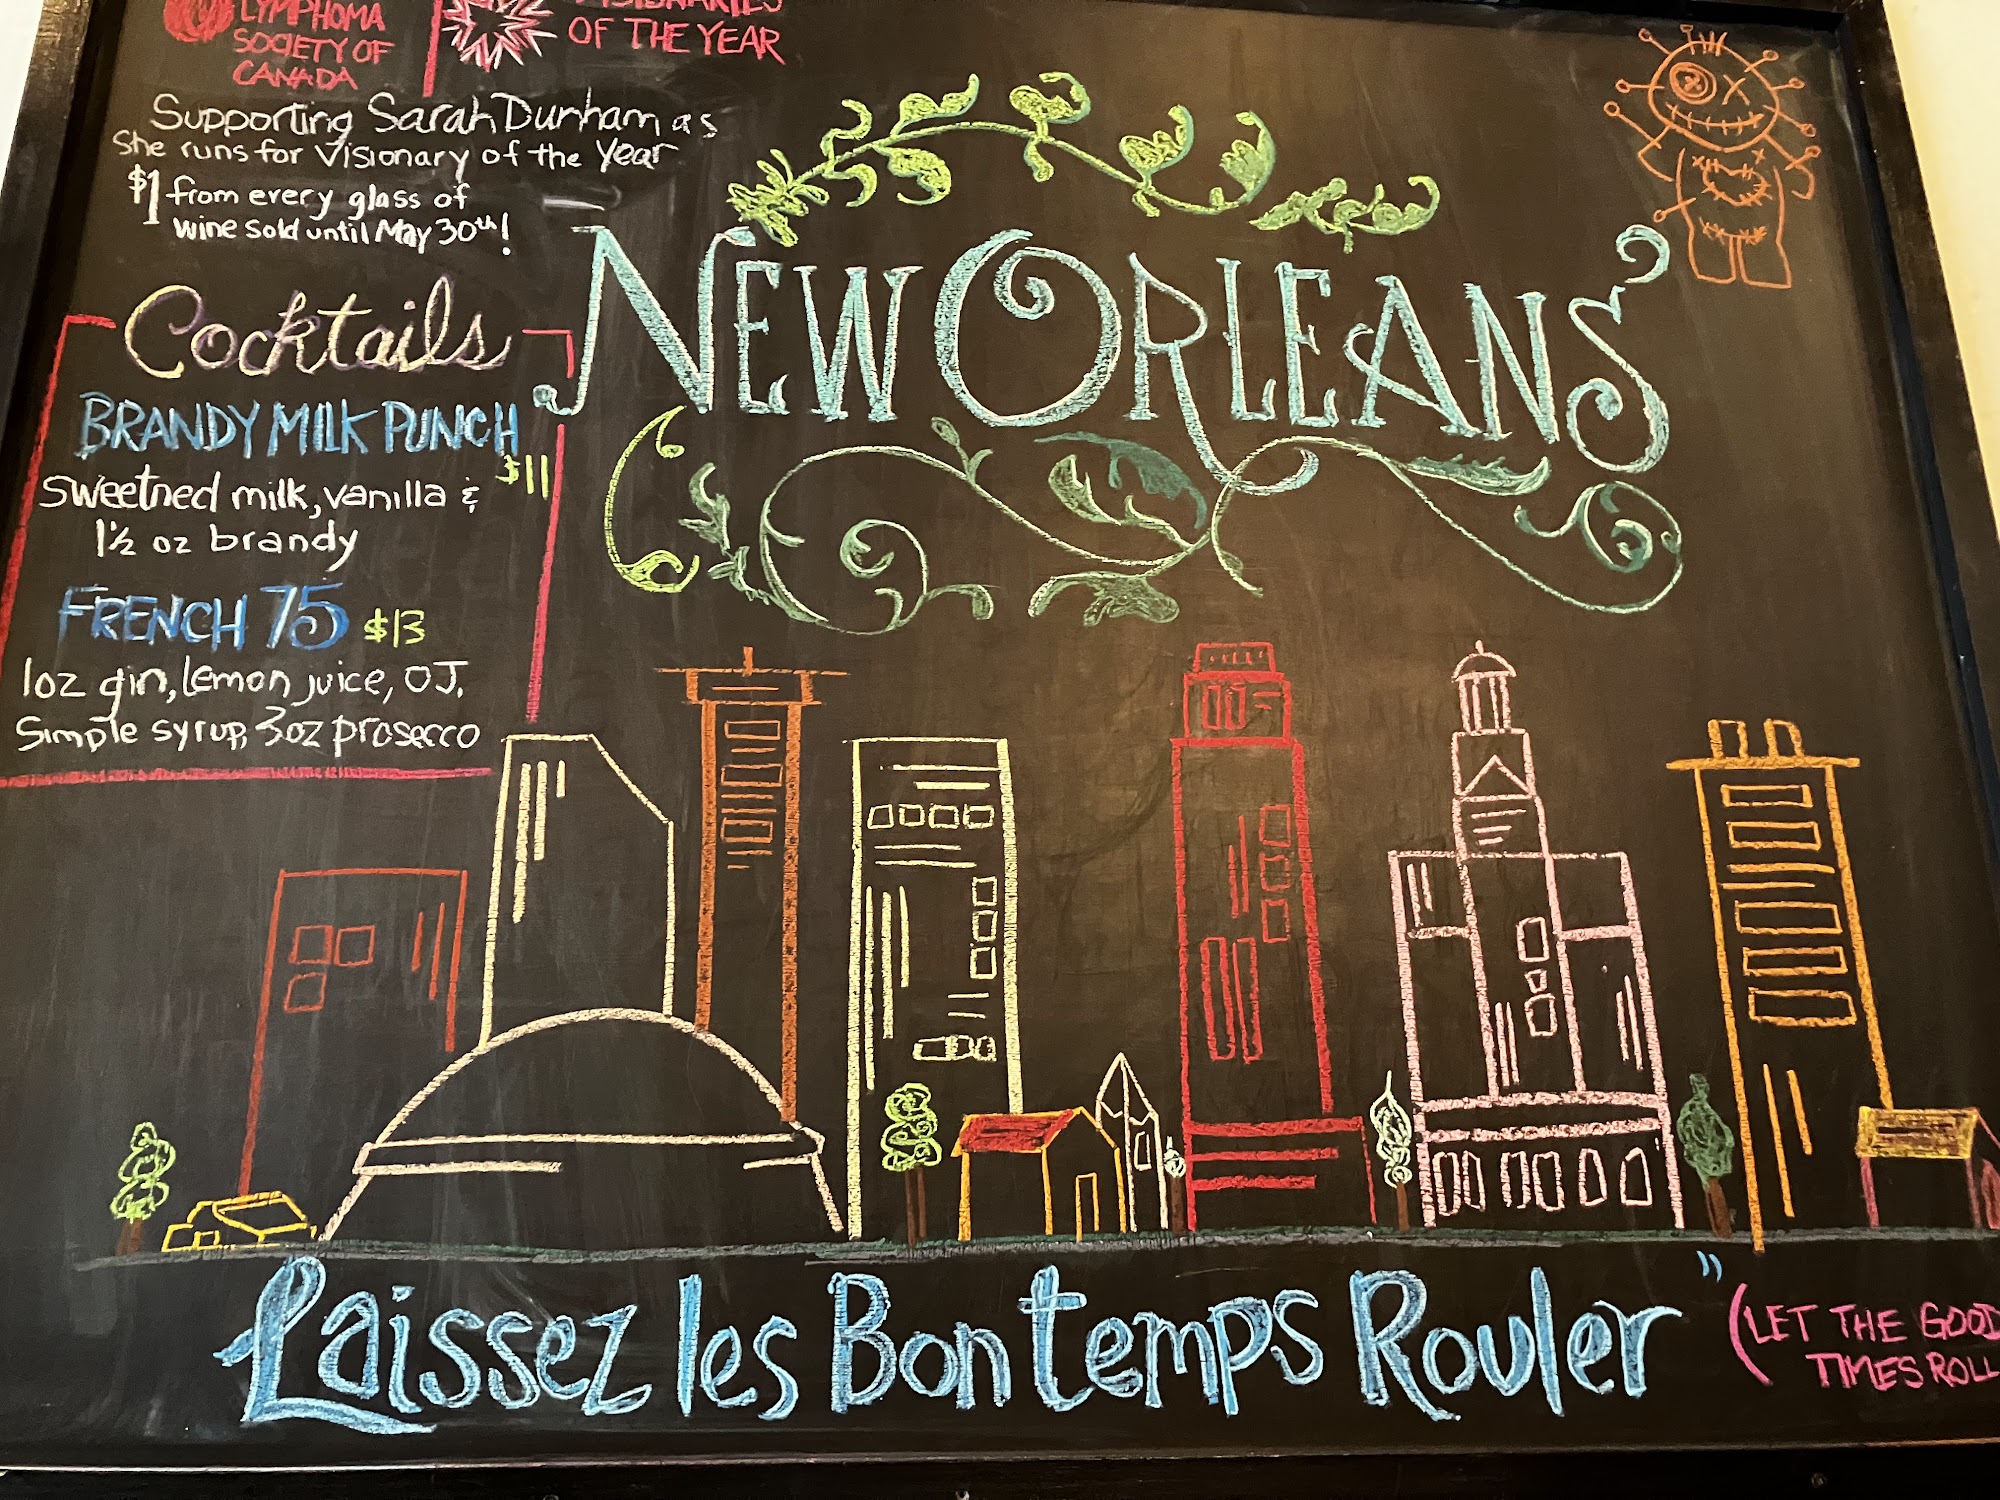 LYMPHOMA
SOCIETY OF
CANADA
OF THE YEAR
Supporting Sarah Dunham as
She runs for Visionary of the Year
$1 from every glass of
wine sold until May 30th!
Cocktails
BRANDY MILK PUNCH
$11
Sweetned milk, vanilla &
1½ oz brandy
FRENCH 75 $13
1oz gin, lemon juice, OJ,
Simple syrup, 3oz prosecco
NEW ORLEANS
Laissez les Bon temps Rouler"
(LET THE GOOD
TIMES ROLL